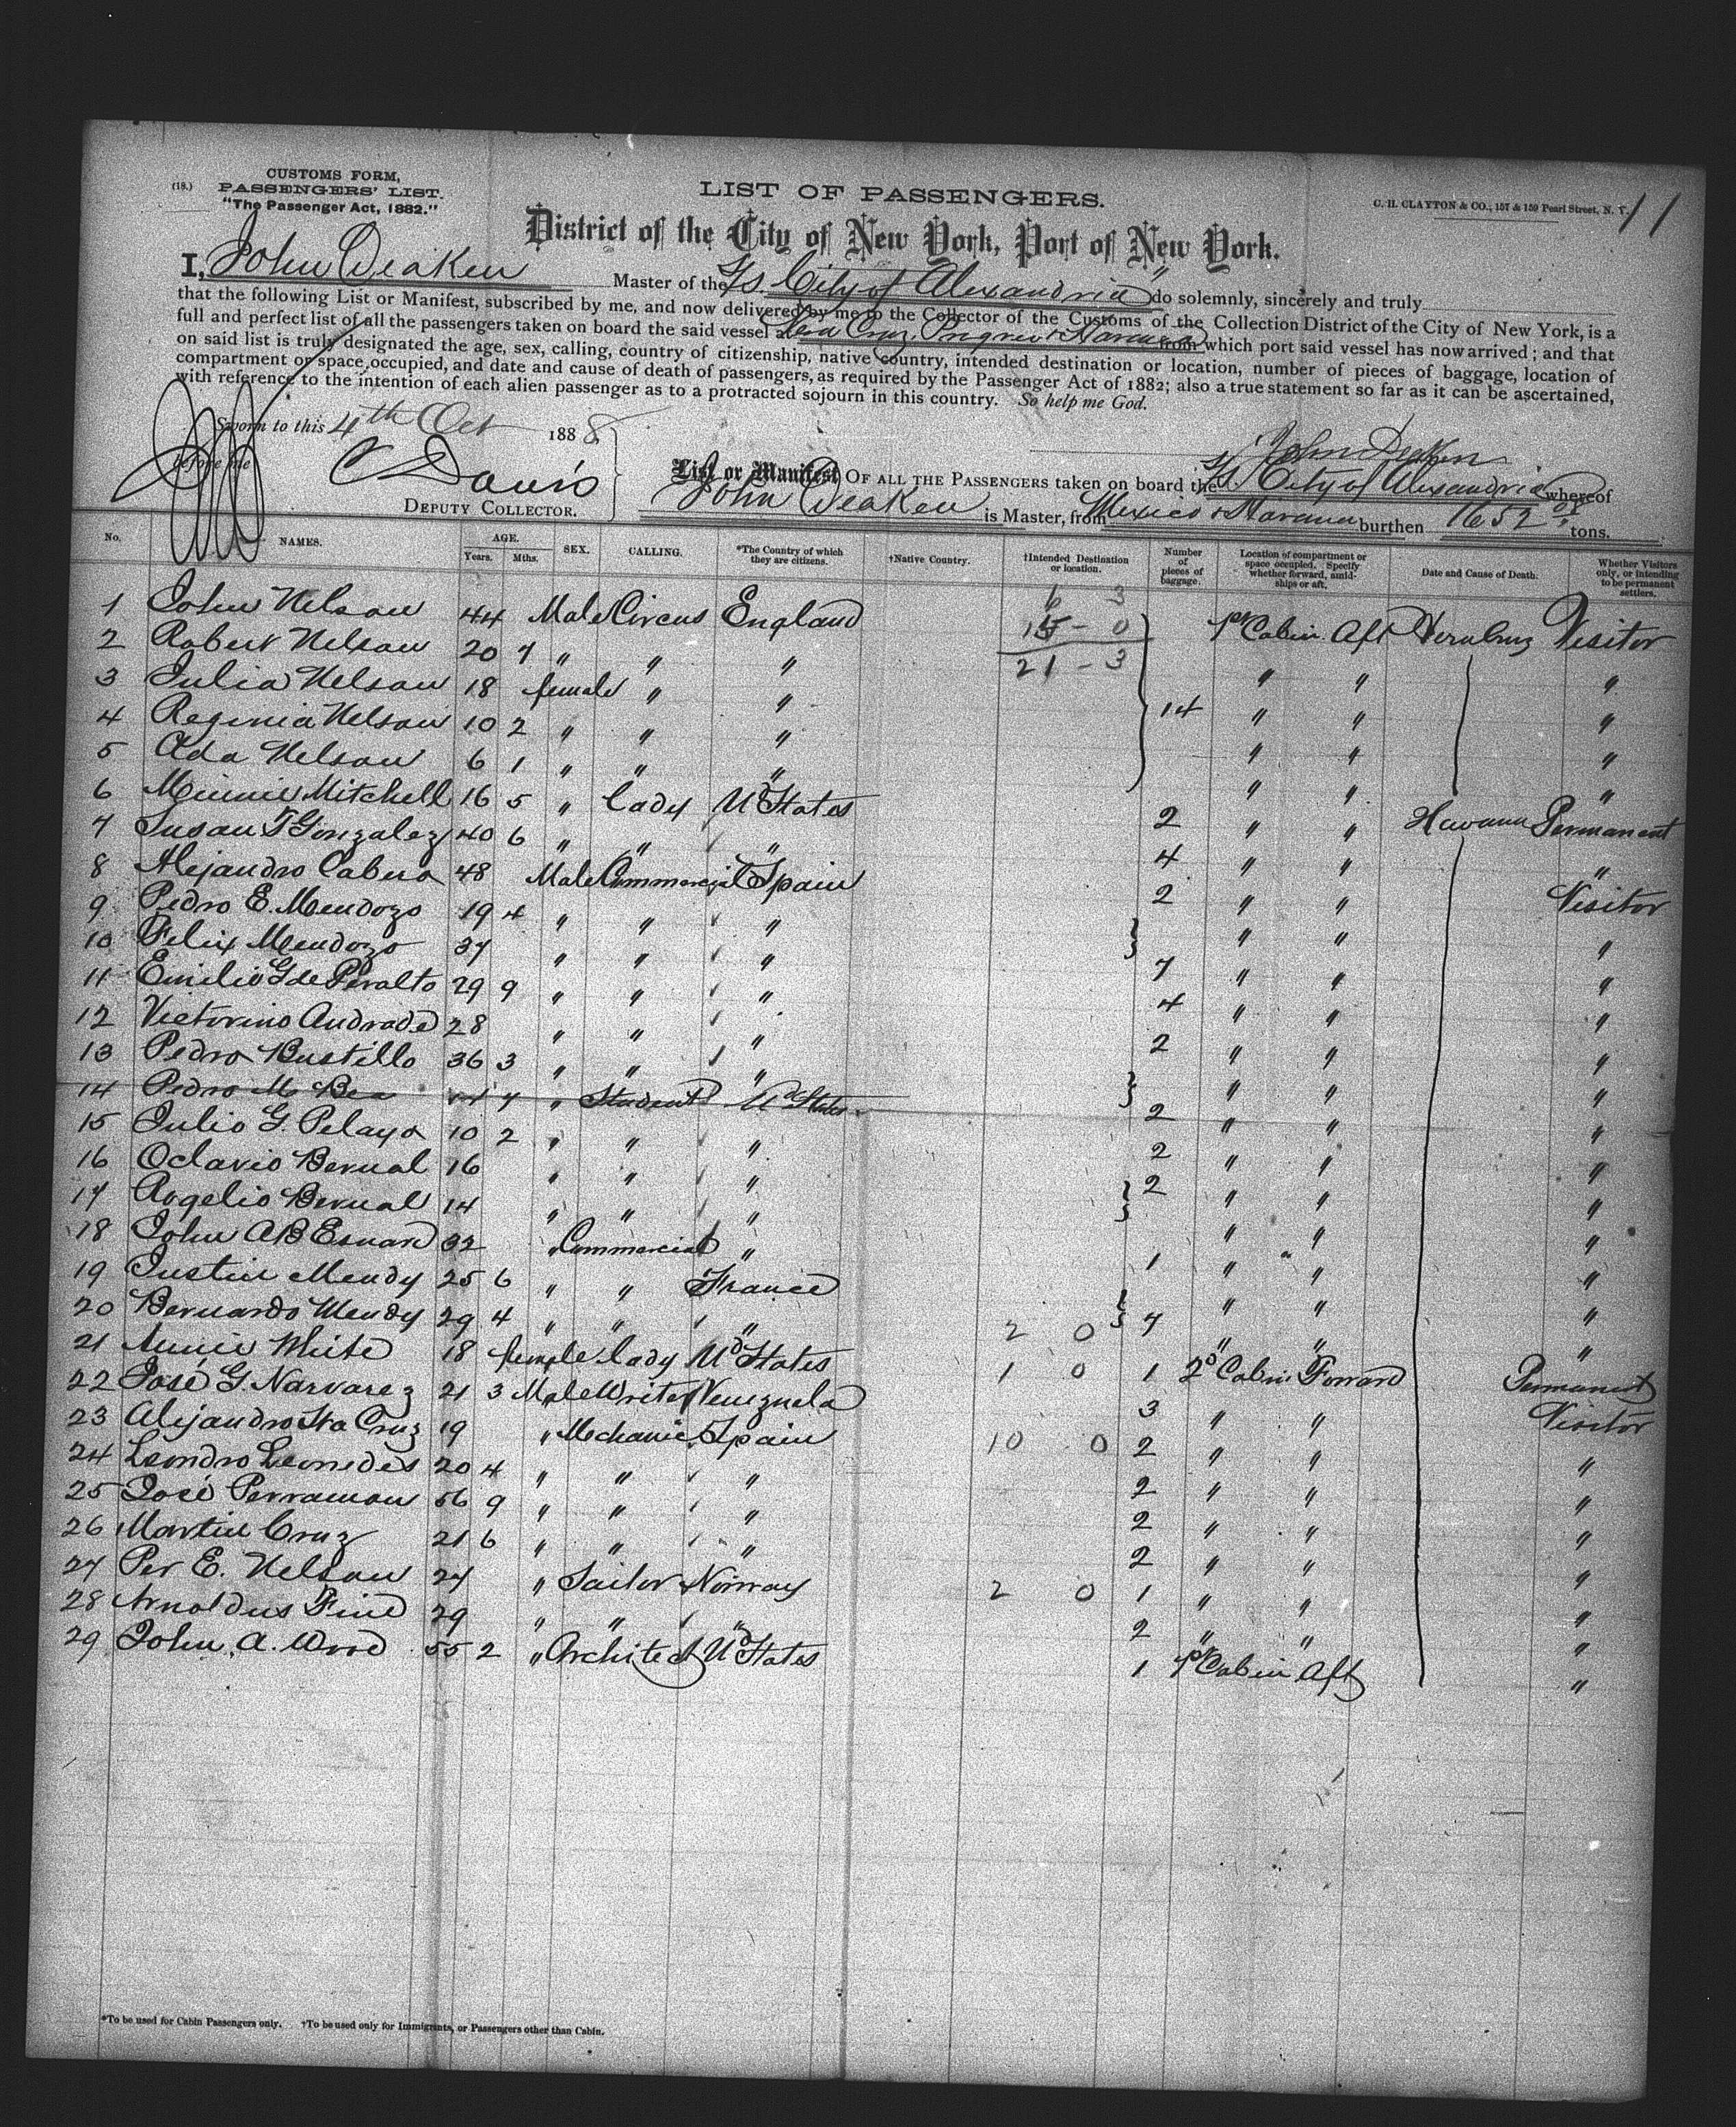 11
CUSTOMS FORM,
(18.) PASSENGERS' LIST.
"The Passenger Act, 1882."
LIST OF PASSENGERS.
C. H. CLAYTON & CO., 157 & 159 Pearl Street, N. Y.
District of the City of New York, Port of New York.
I, John Deaken Master of the SS. City of Alexandria do solemnly, sincerely and truly
that the following List or Manifest, subscribed by me, and now delivered by me to the Collector of the Customs of the Collection District of the City of New York, is a
full and perfect list of all the passengers taken on board the said vessel at Vera Cruz, Progreso & Havana from which port said vessel has now arrived; and that
on said list is truly designated the age, sex, calling, country of citizenship, native country, intended destination or location, number of pieces of baggage, location of
compartment or space occupied, and date and cause of death of passengers, as required by the Passenger Act of 1882; also a true statement so far as it can be ascertained,
with reference to the intention of each alien passenger as to a protracted sojourn in this country. So help me God.
Sworn to this 4th Oct 1888
John Deaken
before me C Davis
DEPUTY COLLECTOR.
List or Manifest OF ALL THE PASSENGERS taken on board the SS. City of Alexandria whereof
John Deaken is Master, from Mexico & Havana burthen 1652 08 tons.
No. NAMES. AGE. Years. Mths. SEX. CALLING. *The Country of which they are citizens. †Native Country. †Intended Destination or location. Number of pieces of baggage. Location of compartment or space occupied. Specify whether forward, amidships or aft. Date and Cause of Death. Whether Visitors only, or intending to be permanent settlers.
6 3
1 John Nelson 44 Male Circus England 15 - 0 1st Cabin Aft Vera Cruz Visitor
2 Robert Nelson 20 7 " " " 21 - 3 " " "
3 Julia Nelson 18 female " " 14 " " "
4 Reginia Nelson 10 2 " " " " " "
5 Ada Nelson 6 1 " " " " " "
6 Minnie Mitchell 16 5 " Lady Ud States 2 " " Havana Permanent
7 Susan T Gonzalez 40 6 " " " 4 " " "
8 Alejandro Cabera 48 Male Commercial Spain 2 " " Visitor
9 Pedro E. Mendozo 19 4 " " " " " "
10 Felix Mendozo 37 " " " 7 " " "
11 Emilio G de Peralto 29 9 " " " 4 " " "
12 Victorino Andrade 28 " " " 2 " " "
13 Pedro Bustillo 36 3 " " " " " "
14 Pedro M Bea 7 " Student Ud States 2 " " "
15 Julio G. Pelayo 10 2 " " " 2 " " "
16 Octavio Bernal 16 " " " 2 " " "
17 Rogelio Bernal 14 " " " " " "
18 John A B 32 " Commercial " 1 " " "
19 Justin Mendy 25 6 " " France " " "
20 Bernardo Mendy 29 4 " " " 2 0 7 " " "
21 Annie White 18 female Lady Ud States 1 0 1 2d Cabin Forward Permanent
22 José G. Narvarez 21 3 Male Writer Venezuela 3 " " Visitor
23 Alejandro Sta Cruz 19 " Mechanic Spain 10 0 2 " " "
24 Leondro Leonedes 20 4 " " " 2 " " "
25 José Perramon 56 9 " " " 2 " " "
26 Martin Cruz 21 6 " " " 2 " " "
27 Per E. Nelson 27 " Sailor Norway 2 0 1 " " "
28 Arnoldus Fine 29 " " " 2 " " "
29 John A. Wood 55 2 " Architect Ud States 1 1st Cabin Aft "
*To be used for Cabin Passengers only. †To be used only for Immigrants, or Passengers other than Cabin.